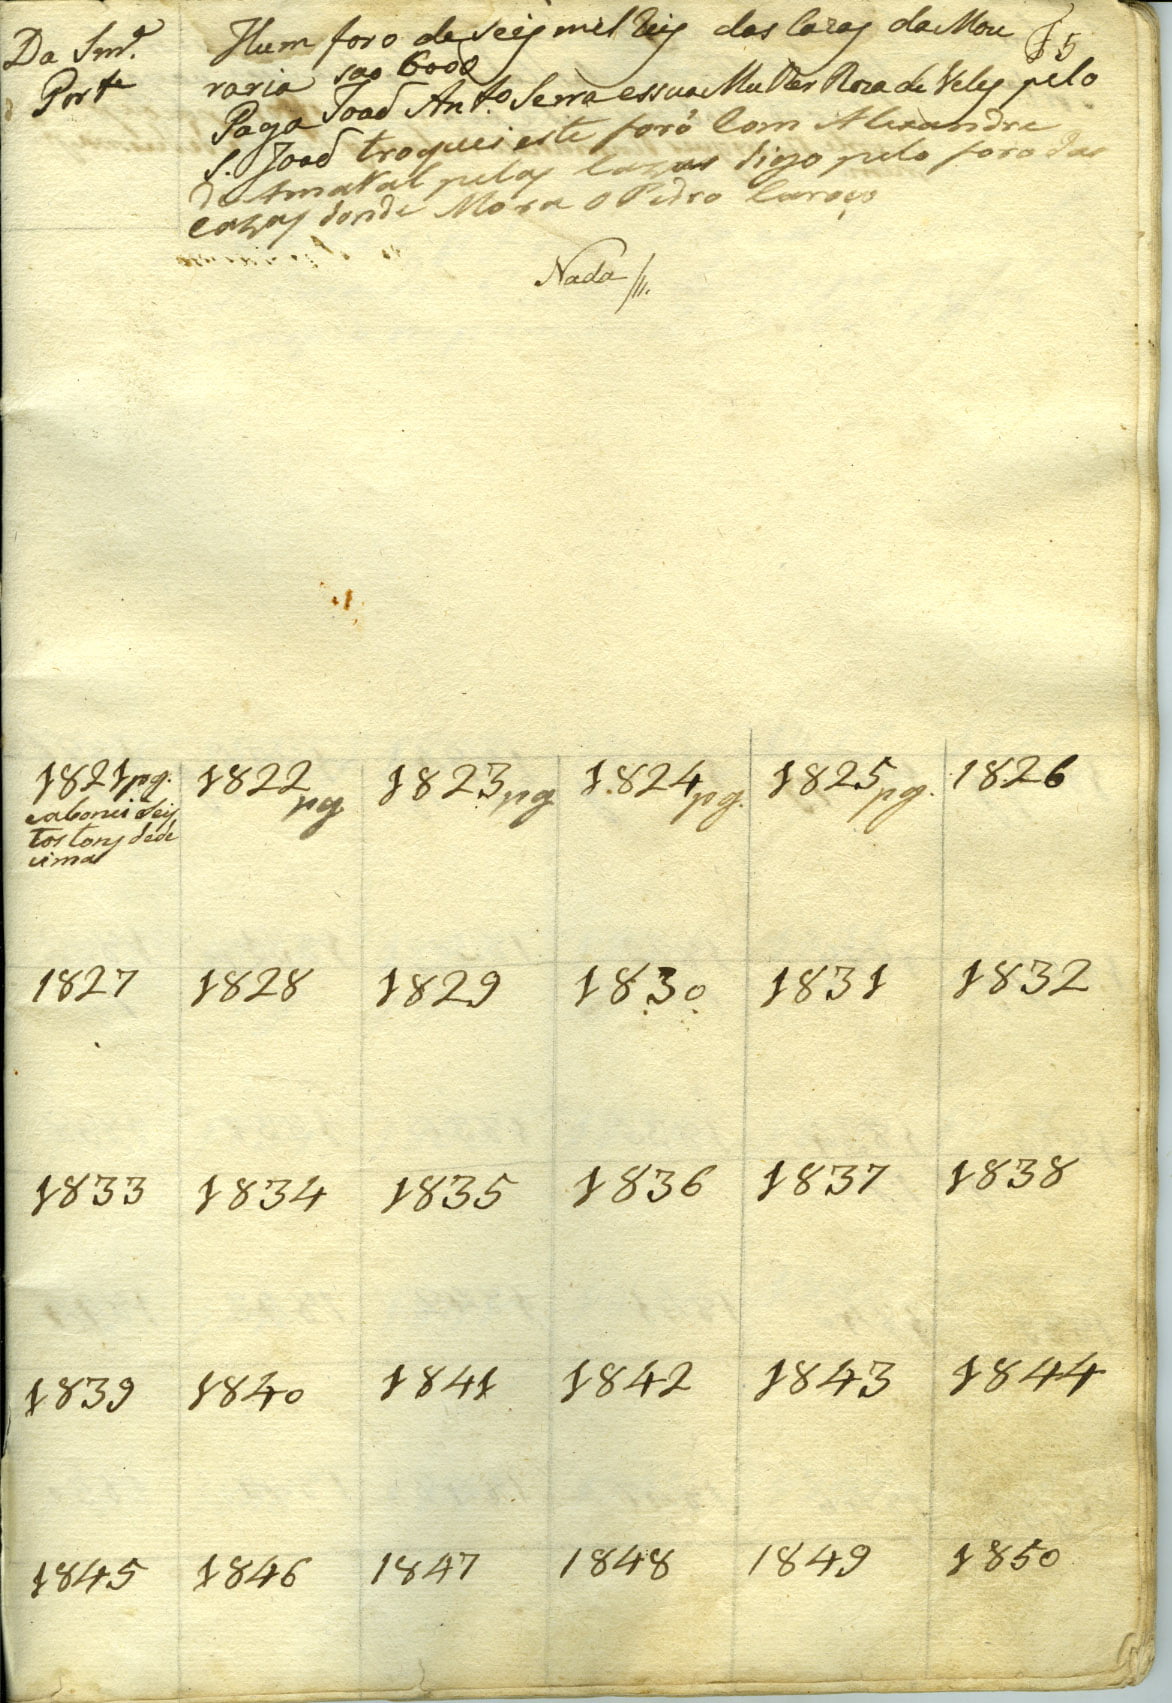 Da Snr.ª
Porte
Hum foro de seis mil Reis das Cazas da Mou
raria sao 6000
15
Paga Joaõ Ant.º Serra essua Mulher Roza de Veles pelo
S. Joaõ troquei este foro Com Alexandre
do Amaral pelas Cazas digo pelo foro das
Cazas donde Mora o Pedro Caroço
Nada //.
1821 pg. 1822 pg 1823 pg 1824 pg. 1825 pg. 1826
eabonei Seis
tostons de de
cima
1827 1828 1829 1830 1831 1832
1833 1834 1835 1836 1837 1838
1839 1840 1841 1842 1843 1844
1845 1846 1847 1848 1849 1850